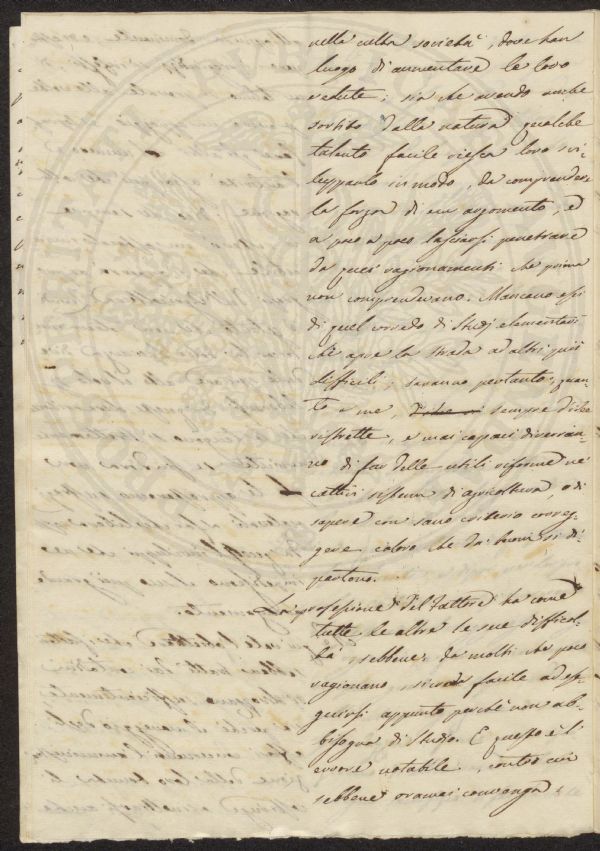 nella culta società, dove han
luogo di aumentare le loro
vedute; sia che avendo anche
sortito dalla natura qualche
talento facile riesca loro svi-
lupparlo in modo, da comprendere
la forza di un argomento, e
a poco a poco lasciarsi penetrare
da quei ragionamenti che prima
non comprendevano. Mancano essi
di quel corredo di Studj elementari
che apre la strada ad altri più
difficili; saranno pertanto, quan-
to a me, sempre d'idee
ristrette, e mai capaci diverran-
no di far delle utili riforme ne'
cattivi sistemi di agricoltura, o di
sapere con sano criterio correg-
gere coloro che dai buoni si di-
partono.
La professione del Fattore ha come
tutte le altre le sue difficol-
tà sebbene da molti che poco
ragionano si creda facile ad ese-
guirsi appunto perchè non ab-
bisogna di Studio. E questo è l'
errore notabile, contro cui
sebbene oramai convenga